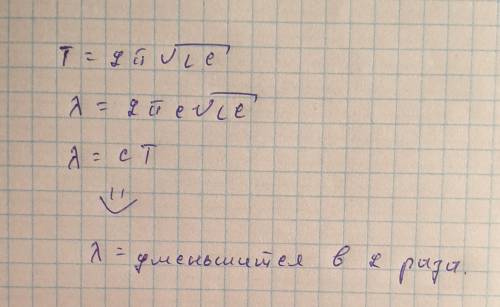 T = 2π√LC
λ = 2πc√LC
λ = cT
⇓
λ = уменьшится в 2 раза.